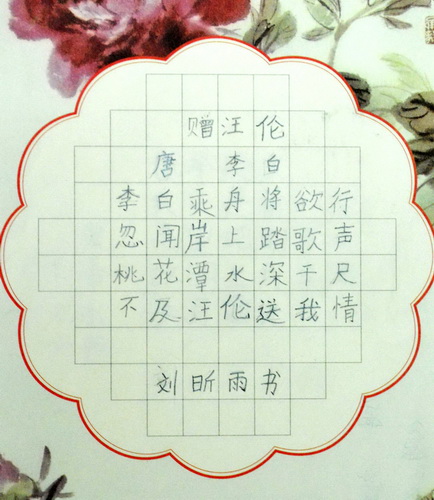 赠汪伦
唐 李白
李白乘舟将欲行
忽闻岸上踏歌声
桃花潭水深千尺
不及汪伦送我情
刘昕雨书